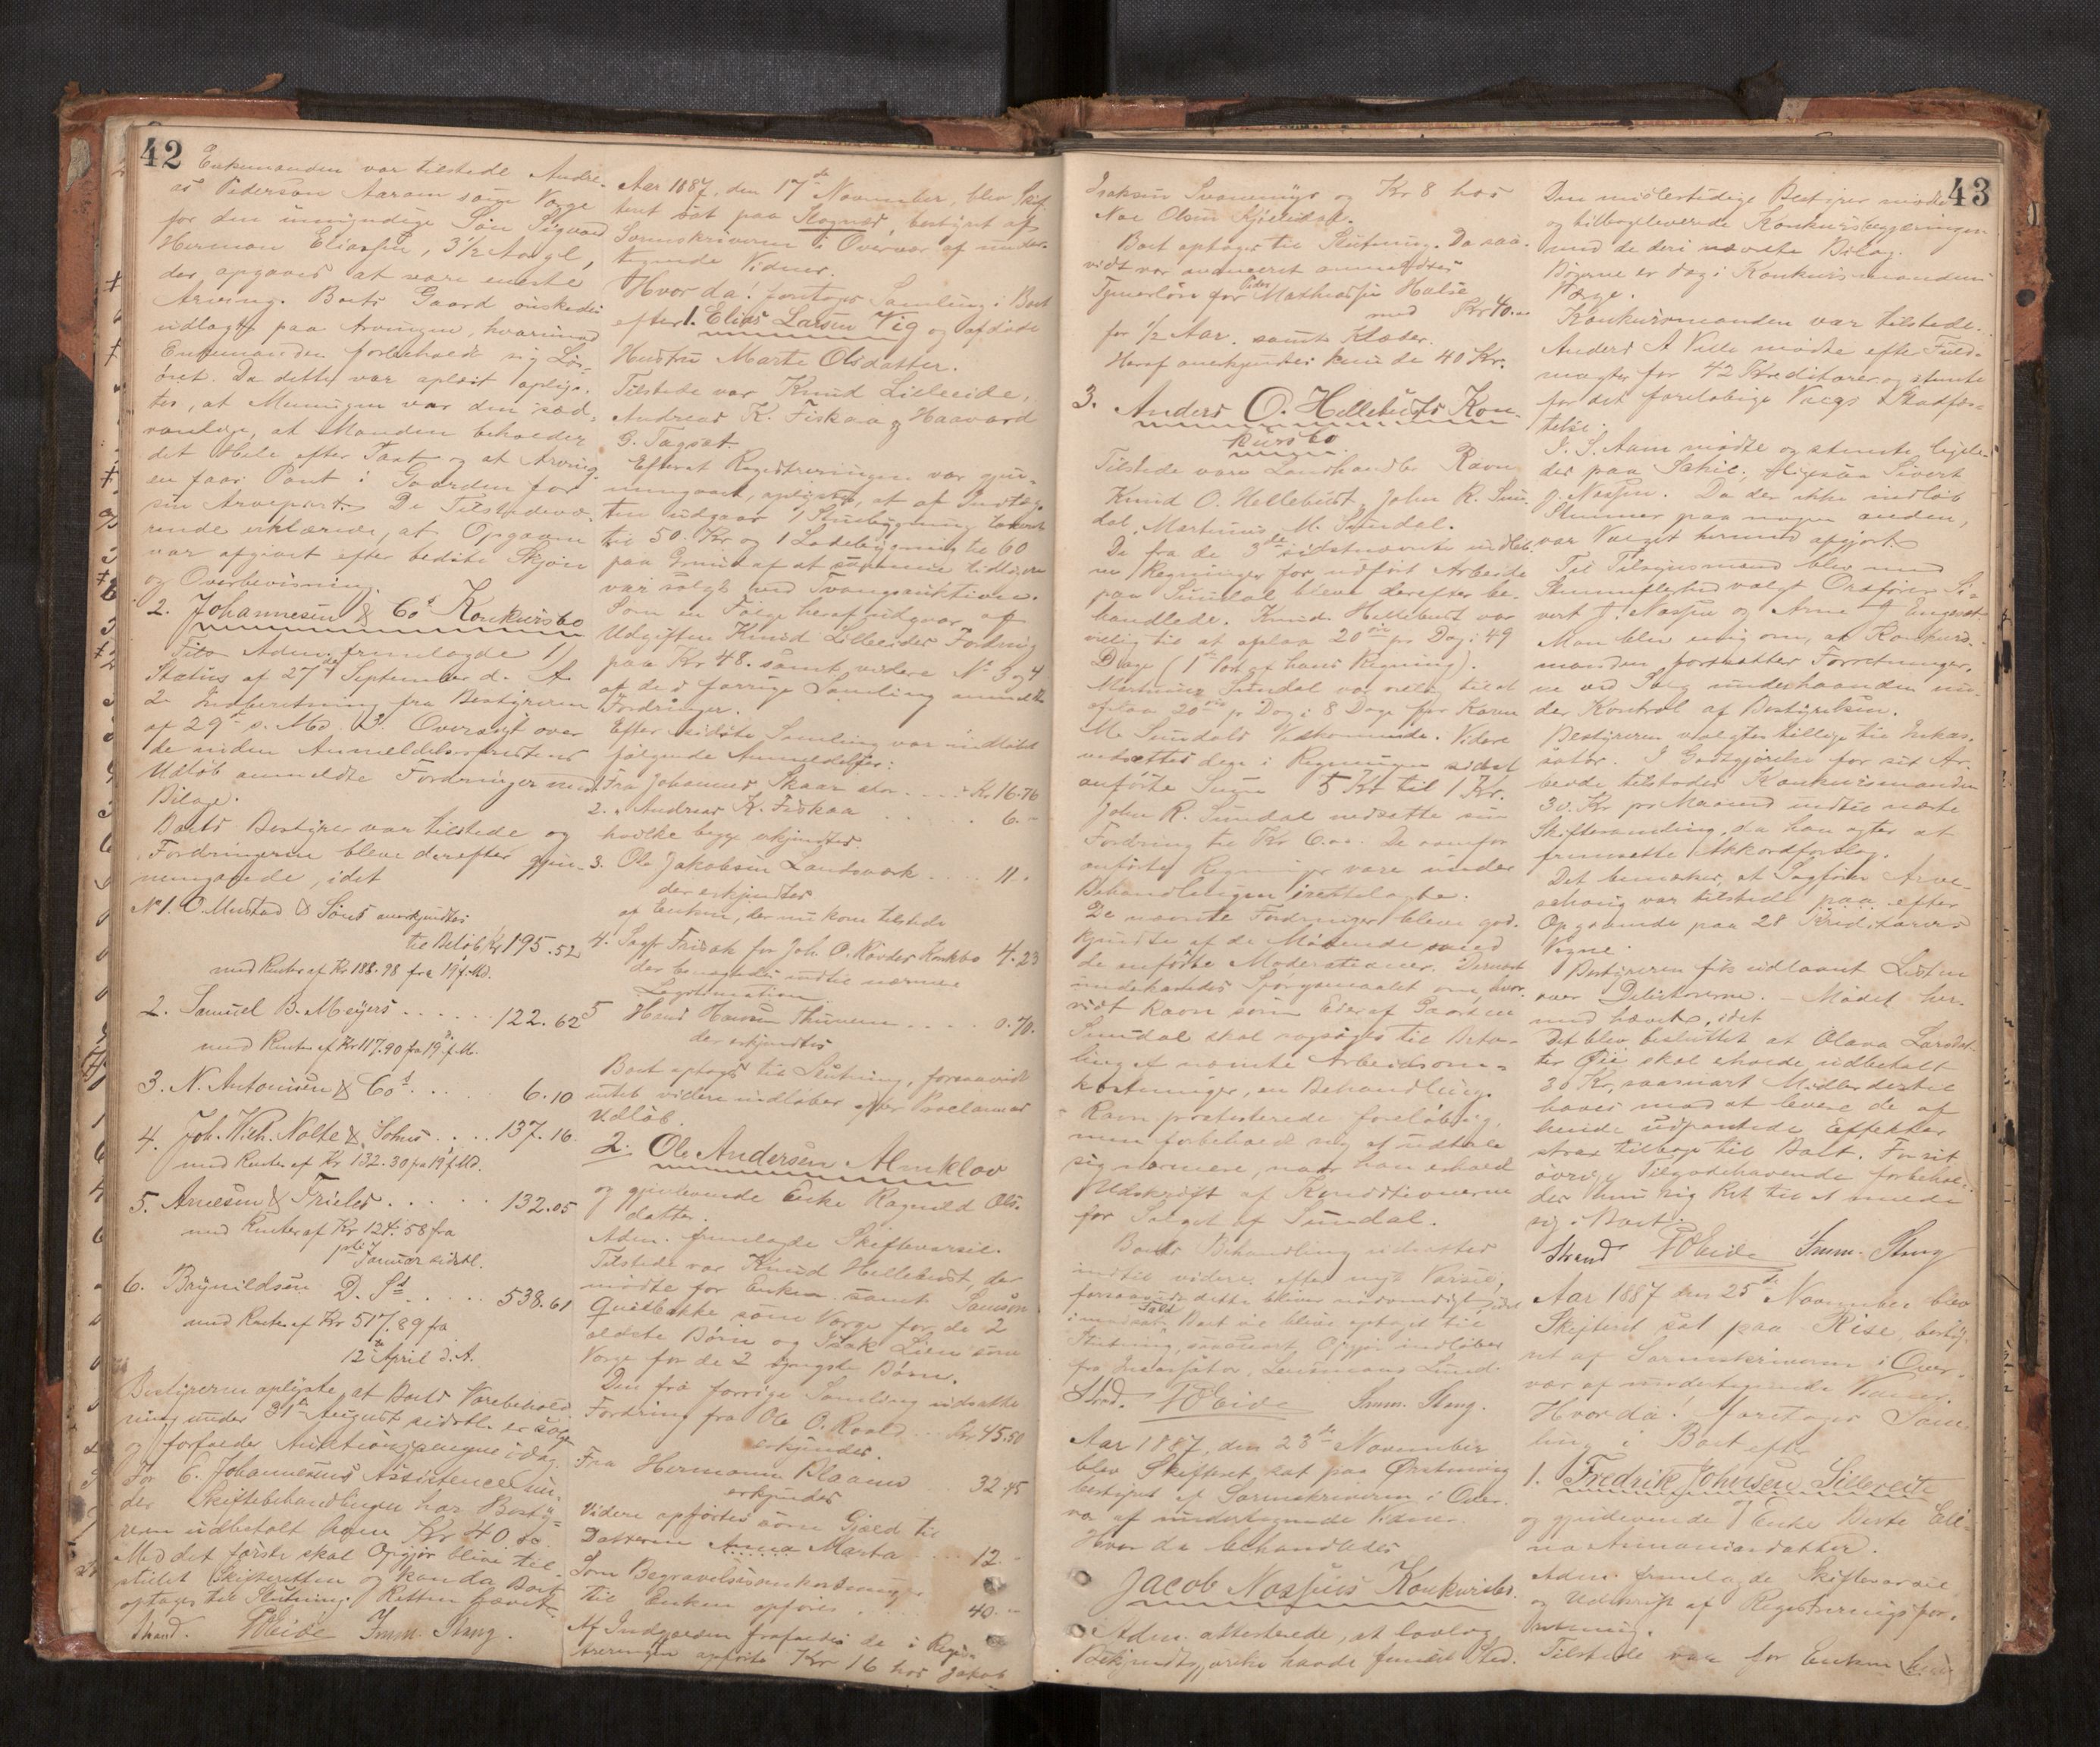 42
Enkemanden var tilstede Andre-
as Pedersen Aaram som Værge
for den umyndige Søn Sigvard
Herman Eliassen, 3½ Aar gl,
der opgaves at være eneste
Arving. Boets Gaard önskedes
udlagt paa Arvingen, hvorimod
Enkemanden forbeholdt sig Lös-
öret. Da dette var oplæst oplys-
tes, at Meningen var den sæd-
vanlige, at Manden beholder
det Hele efter Taxt og at Arving-
en faar Pant i Gaarden for
sin Arvepart. De Tilstedevæ-
rende erklærede, at Opgaven
var afgivet efter bedste Skjön
og Overbevisning.
2. Johannesen & Co's Konkursbo
Adm. fremlagde 1)
Status af 27de September d. A.
2. Indberetning fra Bestyreren
af 29de s. Md. 3. Oversigt over
de inden Anmeldelsesfristens
Udløb anmeldte Fordringer med
Bilage.
Boets Bestyrer var tilstede og
Fordringerne bleve derefter gjen-
nemgaaede, idet
No 1. O. Mustad & Sons anerkjendtes
til Beløb Kr 195.52
med Renter af Kr 188.98 fra 19 f. Md.
2. Samuel B. Meyers . . . . . . 122.62
med Renter af Kr 117.90 fra 19 f. M.
3. N. Antonisen & Co . . . . . 6.10
4. Joh. Wilh. Nolte & Sohns . . . . 137.16
med Renter af Kr 132.30 fra 19 f. Md.
5. Arnesen & Frieles . . . . . . 132.05
med Renter af Kr 124.58 fra
1ste Januar sidstl.
6. Brynildsen D. Sd . . . . . 538.61
med Renter af Kr 517.89 fra
12te April d. A.
Bestyreren oplyste, at Boets Varebehold-
ning under 31te August sidstl. er solgt
og forfalder Auktionspengene idag.
For C. Johannesens Assistence un-
der Skiftebehandlingen har Besty-
reren udbetalt ham Kr 40.00
Med det første skal Opgjør blive til-
stillet Skifteretten og kan da Boet
optages til Slutning. Retten hævet.
Strand. P Eide Imm. Stang.
Aar 1887, den 17de November, blev Skif-
teret sat paa Rognæs, bestyret af
Sorenskriveren i Overvær af under-
tegnede Vidner.
Hvor da! foretoges Samling i Boet
efter 1. Elias Larsen Vig og afdøde
Hustru Marte Olsdatter.
Tilstede var Knud Lilleeide,
Andreas K. Fiskaa og Haavard
G. Tagset.
Efterat Registreringen var gjen-
nemgaaet, oplystes, at af Indtæg-
ten udgaar 1 Stuebygning taxeret
til 50 Kr og 1 Ladebygning til 60
paa Grund af at samme tidligere
var solgt ved Tvangsauktion.
Som en Følge heraf udgaar af
Udgiften Knud Lilleeides Fordring
paa Kr 48. samt videre No 3 og 4
af de i forrige Samling anmeldte
Fordringer.
Efter sidste Samling var indløbet
følgende Anmeldelser:
1. Fra Johannes Skaar stor . . . . Kr 16.76
2. " Andreas K. Fiskaa . . . . . . 6. -
hvilke begge erkjendtes.
3. Ole Jakobsen Landsverk . . . . 11. -
der erkjendtes
af Enken, der nu kom tilstede
4. Sagf. Frisak for Joh. O. Røvdes Konkbo 4.23
der benægtedes indtil nærmere
Legitimation.
5 Hans Hansen Thunem . . . . 0.70.
der erkjendtes
Boet optages til Slutning, forsaavidt
intet videre indløber efter Proclamas
Udløb.
2. Ole Andersen Almklov
og gjenlevende Enke Ragnild Ols-
datter.
Adm. fremlagde Skiftevarsel.
Tilstede var Knud Hellebust, der
mødte for Enken samt Samson
Quilbakke som Værge for de 2
ældste Børn og Isak Lien som
Værge for de 2 yngste Børn.
Den fra forrige Samling udsatte
Fordring fra Ole O. Roald . . . Kr 45.50
erkjendes.
Fra Hermann Blaame . . . 32.45
erkjendes
Videre opførtes som Gjæld til
Datteren Anna Marta . . . 12. -
Som Begravelsesomkostninger
til Enken opføres . . . 40. -
Af Indgjælden frafaldes de i Regi-
streringen opførte Kr 16 hos Jakob
Isaksen Svanemyr og Kr 8 hos
Noe Olsen Kjelsdal.
Boet optages til Slutning. Da saa-
vidt var avanceret anmeldtes
Tjenerløn for Peder Mathiassen Halse
med Kr 40.00
for ½ Aar. samt Klæder.
Heraf anerkjendes kun de 40 Kr.
3. Anders O. Hellebusts Kon-
kursbo
Tilstede vare Landhandler Ravn
Knud O. Hellebust, John R. Sun-
dal, Martinus M. Sundal.
De fra de 3de sidstnævnte indløb-
ne Regninger for udført Arbeide
paa Sundal bleve derefter be-
handlede. Knud Hellebust var
villig til at afslaa 20 øre pr Dag i 49
Dage (1ste Post af hans Regning).
Martinus Sundal var villig til at
afslaa 20 øre pr Dag i 8 Dage for Karen
M. Sundals Vedkommende. Videre
nedsættes den i Regningen sidst
anførte Sum 5 Kr til 1 Kr.
John R. Sundal nedsatte sin
Fordring til Kr 6.00. De ovenfor
anførte Regninger vare under
Behandlingen irettelagte.
De nævnte Fordringer bleve god-
kjendte af de Mødende med
de anførte Moderationer. Dernæst
behandledes Spørgsmaalet om, hvor-
vidt Ravn som Eier af Gaarden
Sundal skal søgsøges til Beta-
ling af nævnte Arbeidsom-
kostninger, en Behandling
Ravn protesterede foreløbig,
men forbeholdt sig at udtale
sig nærmere, naar han erholdt
Udskrift af Konditionerne
for Salget af Sundal.
Boets Behandling udsattes
indtil videre efter nyt Varsel,
forsaavidt dette bliver nødvendigt, idet
i modsat Fald Boet vil blive optaget til
Slutning, saasnart Opgjør indløber
fra Incassator, Lensmand Lund.
Strand. P Eide Imm. Stang.
Aar 1887, den 23de November
blev Skifteret sat paa Ørstenvig
bestyret af Sorenskriveren i Over-
vær af undertegnede Vidner.
Hvor da behandledes
Jacob Nossens Konkursbo.
Adm. attesterede, at lovlig
Bekjendtgjørelse havde fundet Sted.
43
Den midlertidige Bestyrer mødte
og tilbageleverede Konkursbegjæringen
med de deri nævnte Bilag.
Bøgerne er dog i Konkursmandens
Værge.
Konkursmanden var tilstede.
Anders A Velle mødte efter Fuld-
magter for 42 Kreditorer og stemte
for det foreløbige Valgs Stadfæs-
telse.
I. S. Aam mødte og stemte ligele-
des paa Sakie; ligesaa Sivert
J. Nossen. Da der ikke indløb
Stemmer paa nogen anden,
var Valget hermed afgjort.
Til Tilsynsmænd blev med
Stemmeflerhed valgt Ordfører Si-
vert J. Nossen og Arne J Engeset.
Man blev enig om, at Konkurs-
manden fortsætter Forretninger-
ne ved Salg underhaanden un-
der Kontrol af Bestyrelsen.
Bestyreren valgtes tillige til Inkas-
sator. I Godtgjørelse for sit Ar-
beide tilstodes Konkursmanden
30 Kr pr Maaned indtil næste
Skiftesamling, da han agter at
fremsætte Akkordforslag.
Det bemærkes, at Sagfører Arve-
schoug var tilstede paa efter
Opgaaende paa 28 Kreditorers
Vegne.
Bestyreren fik udlaant Listen
over Debitorerne. Mødet her-
med hævet, idet
Det blev besluttet at Olava Larsdat-
ter Øie skal erholde udbetalt
30 Kr, saasnart Midler dertil
haves mod at levere de af
hende udpantede Effekter
strax tilbage til Boet. For sit
øvrige Tilgodehavende forbehol-
der hun sig Ret til at melde
sig i Boet.
Strand P Eide Imm. Stang
Aar 1887 den 25de November blev
Skifteret sat paa Rise, besty-
ret af Sorenskriveren i Over-
vær af undertegnede Vidner.
Hvor da! foretoges Sam-
ling i Boet efter
1. Fredrik Johnsen Lillereite
og gjenlevende Enke Berte Eli-
na Asmoniasdatter.
Adm. fremlagde Skiftevarsel
og Udskrift af Registreringsfor-
retning.
Tilstede var for Enken